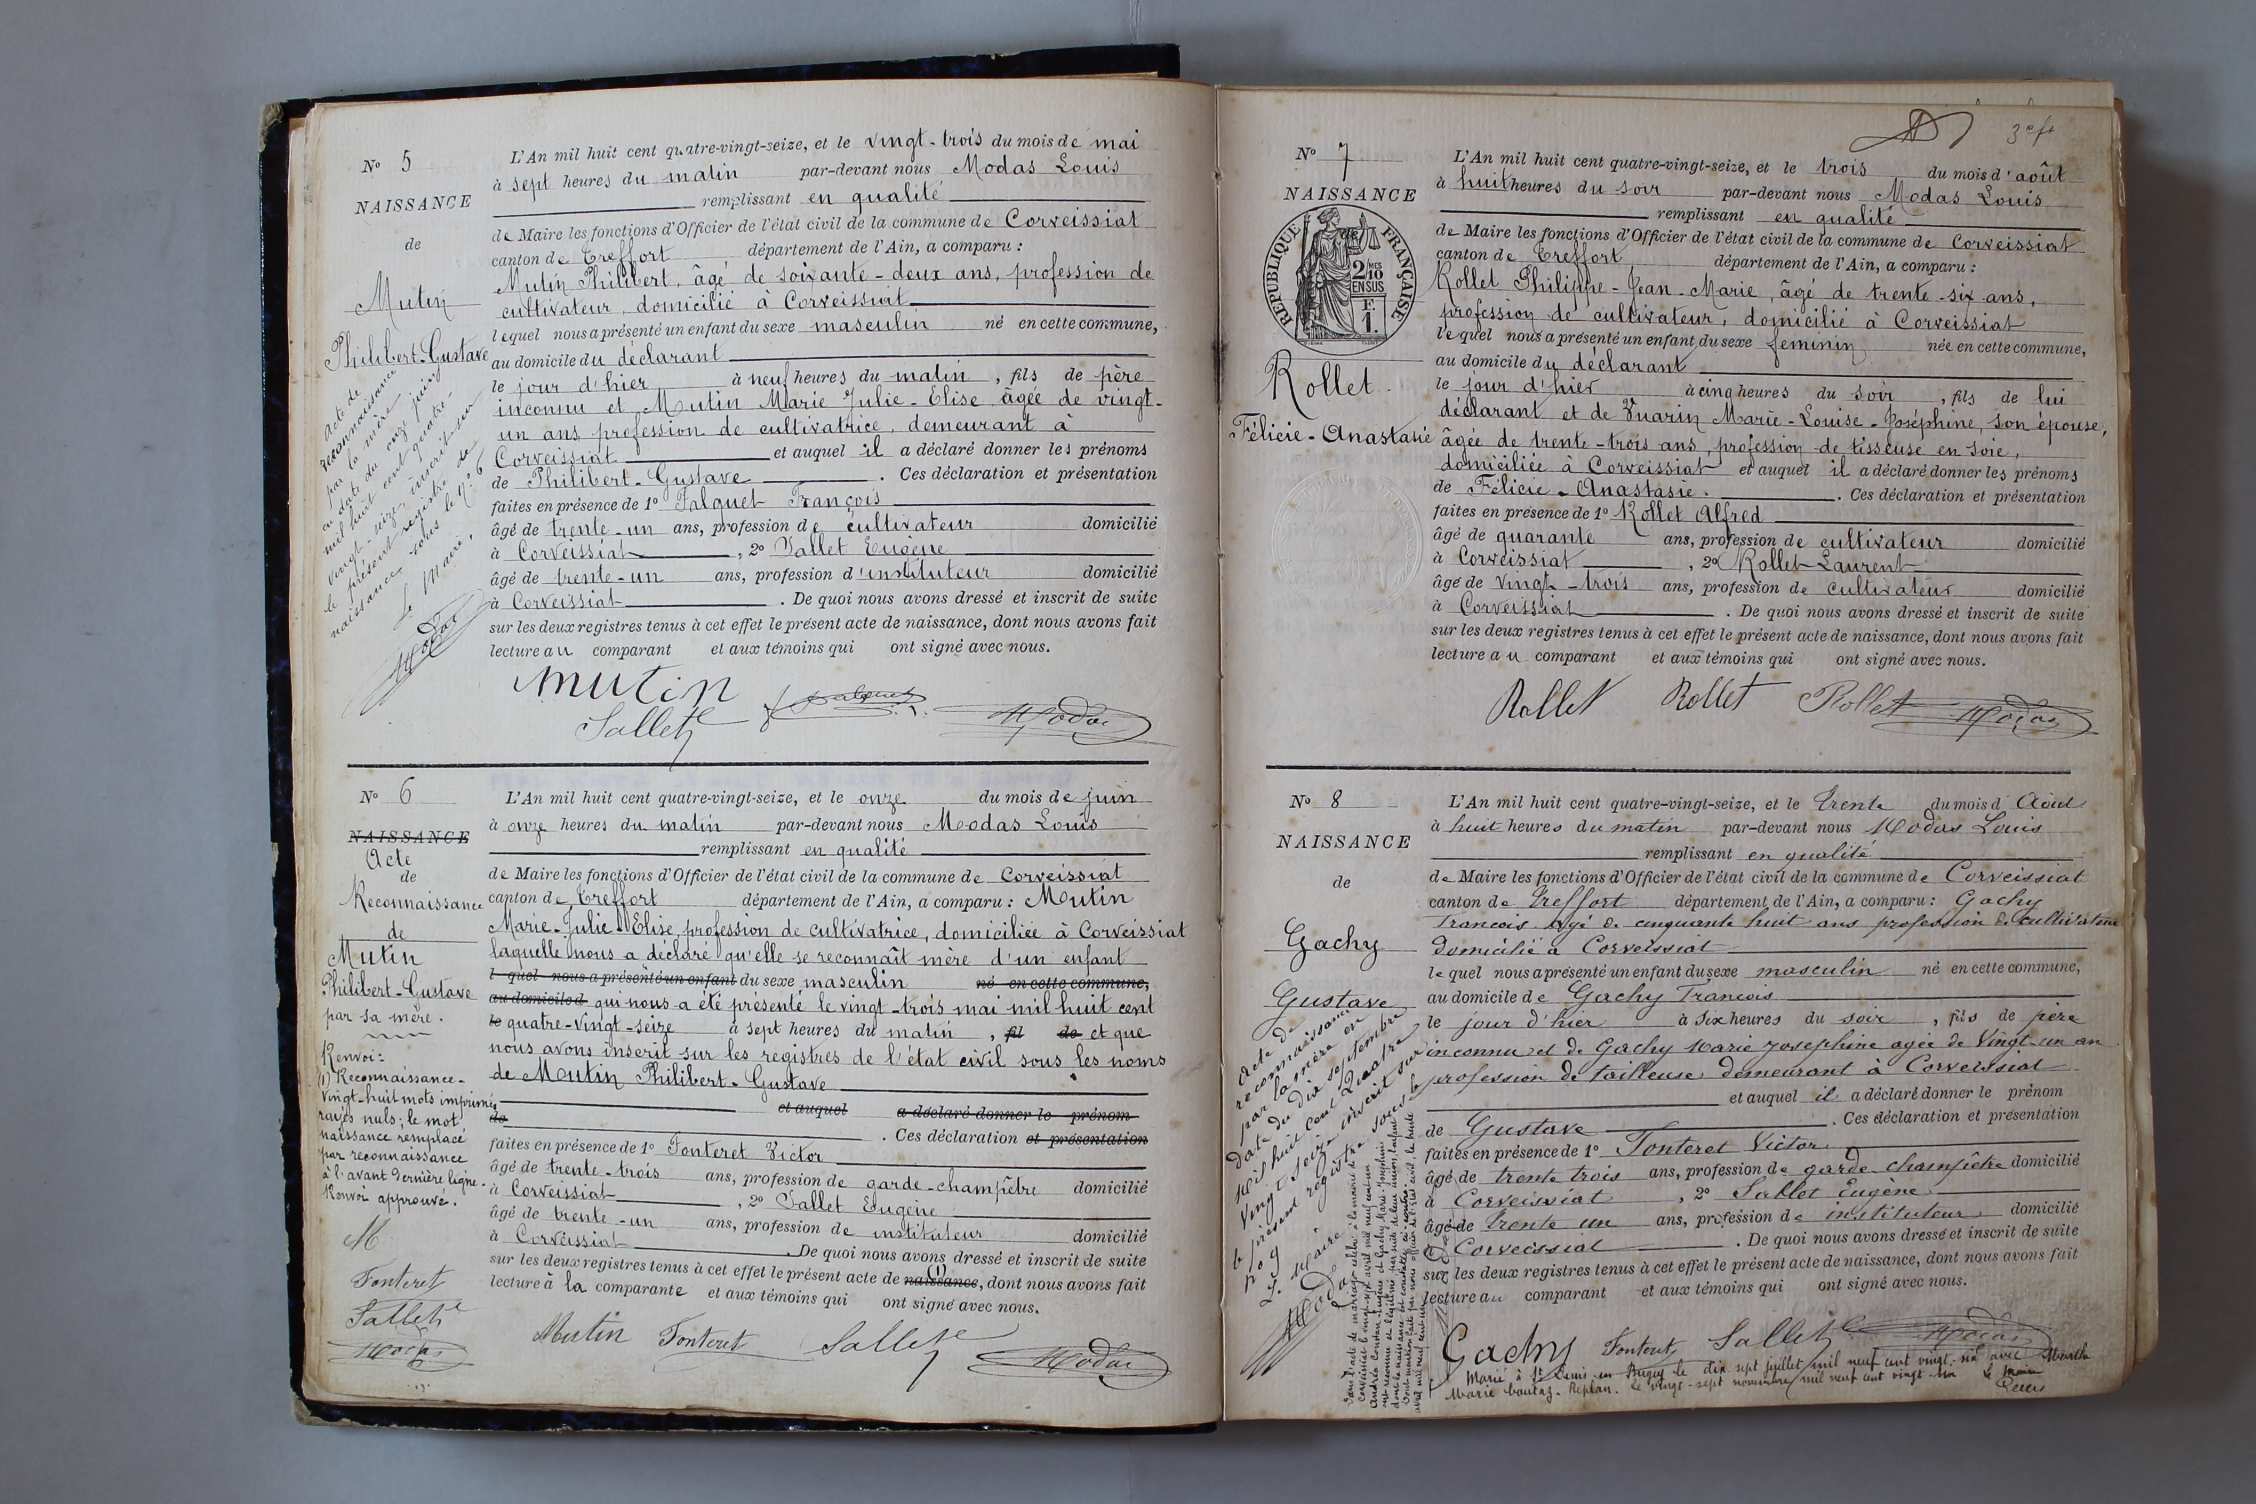 N° 5
NAISSANCE
de
Mutin
Philibert-Gustave
acte de
reconnaissance
par la mère
en date du onze juin
mil huit cent quatre-
vingt-seize, inscrit sur
le présent registre de
naissance sous le N° 6
Le Maire,
Modas
L'An mil huit cent quatre-vingt-seize, et le vingt-trois du mois de mai
à sept heures du matin par-devant nous Modas Louis
remplissant en qualité
de Maire les fonctions d'Officier de l'état civil de la commune de Corveissiat
canton de Treffort département de l'Ain, a comparu :
Mutin Philibert, âgé de soixante-deux ans, profession de
cultivateur, domicilié à Corveissiat
lequel nous a présenté un enfant du sexe masculin né en cette commune,
au domicile du déclarant
le jour d'hier à neuf heures du matin, fils de père
inconnu et Mutin Marie Julie-Elise âgée de vingt-
un ans profession de cultivatrice, demeurant à
Corveissiat et auquel il a déclaré donner les prénoms
de Philibert-Gustave. Ces déclaration et présentation
faites en présence de 1° Falquet François
âgé de trente-un ans, profession de cultivateur domicilié
à Corveissiat, 2° Sallet Eugène
âgé de trente-un ans, profession d'instituteur domicilié
à Corveissiat. De quoi nous avons dressé et inscrit de suite
sur les deux registres tenus à cet effet le présent acte de naissance, dont nous avons fait
lecture au comparant et aux témoins qui ont signé avec nous.
Mutin
Sallet Modas
N° 6
NAISSANCE
Acte
de
Reconnaissance
de
Mutin
Philibert-Gustave
par sa mère.
Renvoi:
(1) Reconnaissance-
Vingt-huit mots imprimés
rayés nuls; le mot
naissance remplacé
par reconnaissance
à l'avant dernière ligne.
Renvoi approuvé.
M
Fonteret
Sallet
Modas
L'An mil huit cent quatre-vingt-seize, et le onze du mois de juin
à onze heures du matin par-devant nous Modas Louis
remplissant en qualité
de Maire les fonctions d'Officier de l'état civil de la commune de Corveissiat
canton de Treffort département de l'Ain, a comparu : Mutin
Marie-Julie-Elise, profession de cultivatrice, domiciliée à Corveissiat
laquelle nous a déclaré qu'elle se reconnaît mère d'un enfant
l quel nous a présenté un enfant du sexe masculin né en cette commune,
au domicile d qui nous a été présenté le vingt-trois mai mil huit cent
le quatre-vingt-seize à sept heures du matin, fil de et que
nous avons inscrit sur les registres de l'état civil sous les noms
de Mutin Philibert-Gustave
et auquel a déclaré donner le prénom
de . Ces déclaration et présentation
faites en présence de 1° Fonteret Victor
âgé de trente-trois ans, profession de garde-champêtre domicilié
à Corveissiat, 2° Sallet Eugène
âgé de trente-un ans, profession de instituteur domicilié
à Corveissiat. De quoi nous avons dressé et inscrit de suite
sur les deux registres tenus à cet effet le présent acte de naissance (1), dont nous avons fait
lecture à la comparante et aux témoins qui ont signé avec nous.
Mutin Fonteret Sallet Modas
3e ft
N° 7
NAISSANCE
RÉPUBLIQUE FRANÇAISE
2/10 MES
EN SUS
F.
1.
Rollet
Félicie-Anastasie
L'An mil huit cent quatre-vingt-seize, et le trois du mois d'août
à huit heures du soir par-devant nous Modas Louis
remplissant en qualité
de Maire les fonctions d'Officier de l'état civil de la commune de Corveissiat
canton de Treffort département de l'Ain, a comparu :
Rollet Philippe-Jean-Marie, âgé de trente-six ans,
profession de cultivateur, domicilié à Corveissiat
lequel nous a présenté un enfant du sexe feminin née en cette commune,
au domicile du déclarant
le jour d'hier à cinq heures du soir, fils de lui
déclarant et de Vuarin Marie-Louise-Joséphine, son épouse,
âgée de trente-trois ans, profession de tisseuse en soie,
domiciliée à Corveissiat et auquel il a déclaré donner les prénoms
de Félicie-Anastasie. Ces déclaration et présentation
faites en présence de 1° Rollet Alfred
âgé de quarante ans, profession de cultivateur domicilié
à Corveissiat, 2° Rollet Laurent
âgé de vingt-trois ans, profession de cultivateur domicilié
à Corveissiat. De quoi nous avons dressé et inscrit de suite
sur les deux registres tenus à cet effet le présent acte de naissance, dont nous avons fait
lecture au comparant et aux témoins qui ont signé avec nous.
Rollet Rollet Rollet Modas
N° 8
NAISSANCE
de
Gachy
Gustave
Acte de
reconnaissance
par la mère en
date du dix septembre
mil huit cent Quatre
Vingt Seize inscrit sur
le présent registre sous le
N° 9
Le Maire
Modas
L'An mil huit cent quatre-vingt-seize, et le trente du mois d'Août
à huit heures du matin par-devant nous Modas Louis
remplissant en qualité
de Maire les fonctions d'Officier de l'état civil de la commune de Corveissiat
canton de Treffort département de l'Ain, a comparu : Gachy
Francois âgé de cinquante huit ans profession de cultivateur
domicilié à Corveissiat
lequel nous a présenté un enfant du sexe masculin né en cette commune,
au domicile de Gachy Francois
le jour d'hier à six heures du soir, fils de père
inconnu et de Gachy Marie Josephine agée de Vingt-un an
profession de tailleuse demeurant à Corveissiat
et auquel il a déclaré donner le prénom
de Gustave. Ces déclaration et présentation
faites en présence de 1° Fonteret Victor
âgé de trente trois ans, profession de garde champêtre domicilié
à Corveissiat, 2° Sallet Eugène
âgé de trente un ans, profession de instituteur domicilié
à Corveissiat. De quoi nous avons dressé et inscrit de suite
sur les deux registres tenus à cet effet le présent acte de naissance, dont nous avons fait
lecture au comparant et aux témoins qui ont signé avec nous.
Gachy Fonteret Sallet Modas
Marié à St Denis en Bugey le dix sept juillet mil neuf cent vingt-six avec
Marie le vingt-sept novembre mil neuf cent vingt